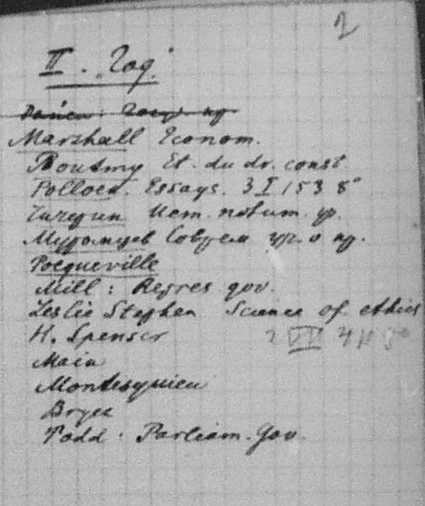 2
II. „Год“
Marshall Econom.
Boutmy Et. du dr. const
Pollock. Essays. 3 I 153 8°
Чичерин Ист. полит. уч.
Муромцев Соврем
Tocqueville
Mill: Repres gov.
Leslie Stephen Science of ethics
H. Spenser
Main
Montesquieu
Bryce
Todd. Parliam. Gov.